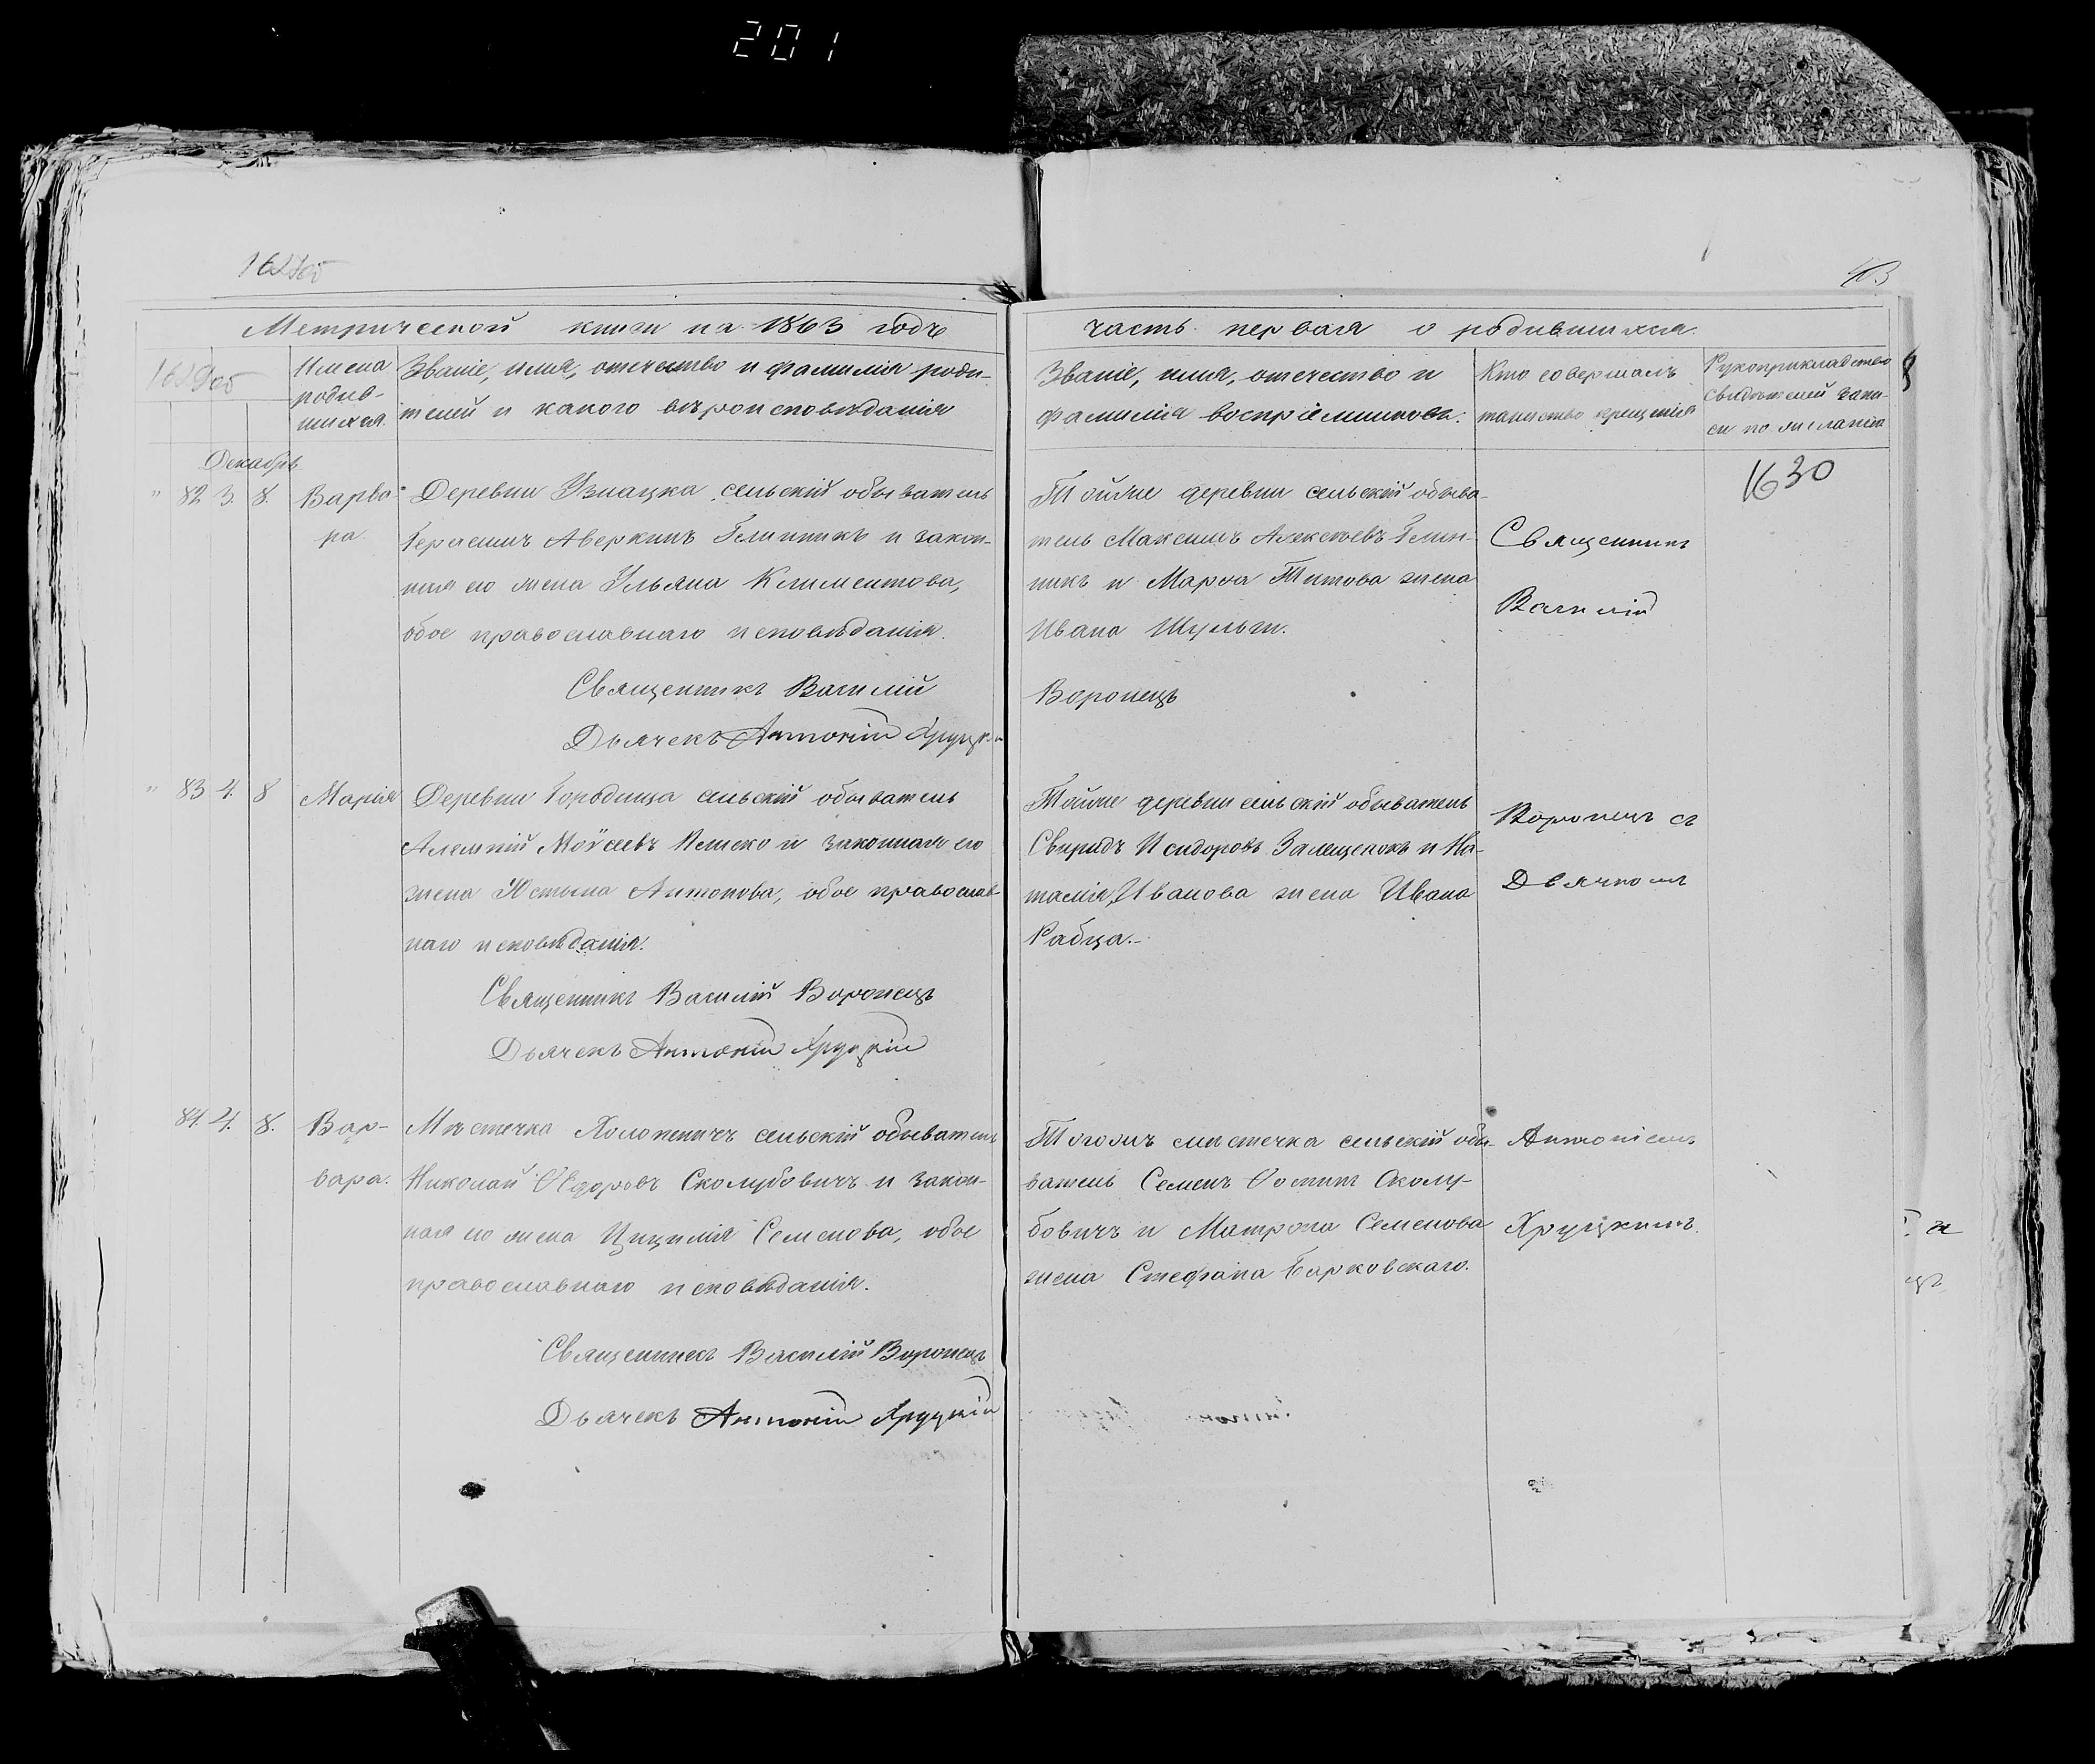 201
Метрической книги на 1863 годъ
часть первая о родившихся.
Имена
родив-
шихся.
Званіе, имя, отечество и фамилія роди-
телей и какого вѣроисповѣданія
Званіе, имя, отечество и
фамилія воспріемниковъ.
Кто совершалъ
таинство крещенія
Рукоприкладство
свидѣтелей запи-
си по желанію
1630
Декабрь
" 82 3. 8. Варва-
ра
Деревни сельскій обыватель
Герасимъ Аверкинъ Глинникъ и закон-
ная его жена Ульяна Климентова,
обое православнаго исповѣданія.
Священникъ Василій
Дьячекъ Антоній Хруцкій
Тойже деревни сельскій обыва-
тель Максимъ Алексѣевъ Глин-
никъ и Марѳа Титова жена
Ивана
Воронецъ
Священникъ
Василій
" 83 4. 8 Марія
Деревни сельскій обыватель
Мойсеевъ и законная его
жена Юстына Антонова, обое православ-
наго исповѣданія.
Священникъ Василій Воронецъ
Дьячекъ Антоній Хруцкій
Тойже деревни сельскій обыватель
Свиридъ Исидоровъ и На-
талія Ивановa жена Ивана
Рабца.-
Воронецъ съ
Дьячкомъ
84. 4. 8. Вар-
вара.
Мѣстечка Холопеничъ сельскій обыватель
Николай Ѳедоровъ Сколубовичъ и закон-
ная его жена Цицилія Семенова, обое
православнаго исповѣданія.
Священникъ Василій Воронецъ
Дьячекъ Антоній Хруцкій
Тогожъ мѣстечка сельскій обы-
ватель Семенъ Сколу-
бовичъ и Матрона Семенова
жена Стефана Барковскаго.
Антоніемъ
Хруцкимъ.